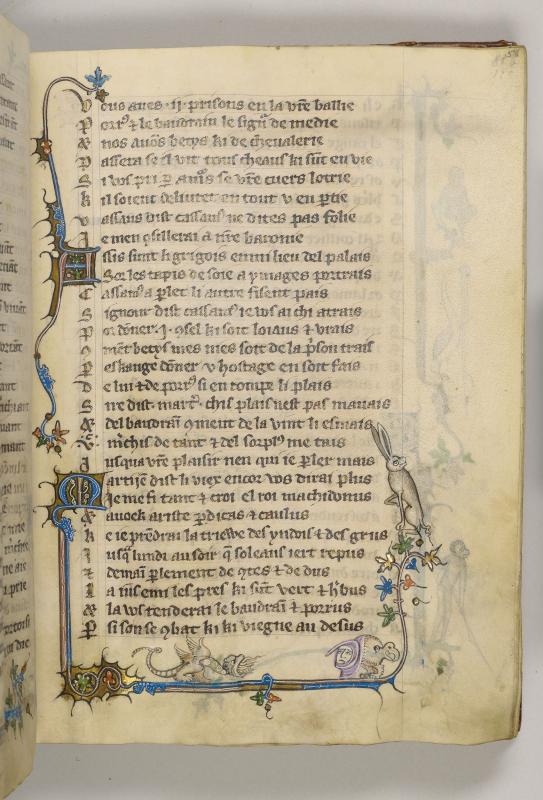 Vous aues .ii. prisons en la vr̃e ballie
Porr9 & le baudrain le sign̄ de medie
& nos auōs betys ki de cheualerie
Passera se il vit tous cheaus ki sūt en vie
Si vos pri
se vr̃e cuers lotrie
Kil soient deliuret en tout v en ꝑtie
Vassaus dist cassans ne dites pas folie
Je men ꝯsillerai a me baronie
Assis sunt li grigois enmi lieu del palais
Sor les tapis de soie a ymages portrais
Cassans a ꝑlet li autre fisent pais
Signour dist cassans ie vos ai chi atrais
Por doner .i. ꝯsel ki soit loiaus & vrais
betys mes nies soit de la pͥson trais
Pes kange doner v hostage en soit fais
De lui & de porr9 si en ꝯ li plais
Sire dist mart chis plais nest pas mauais
& del baudrain ꝯment de la vint li esmais
michis de tant & del sorpl9 me tais
Jusqua vr̃e plaisir nen qui ie ꝑler mais
Martijen dist li viex encor vos dirai plus
Je me fi tant & croi el roi machidonus
& auoek ariste ꝑdicas & caulus
Ke ie prēdrai la triewe des yndois & des grius
Jusq̄ lundi au soir q̄ soleaus iert repus
& demain ꝑlement de ꝯtes & de dus
La nis enmi les pres ki sūt vert & hͬbus
& la vos renderai le baudrain & porrus
Par si son se ꝯbat ki ki viegne au desus